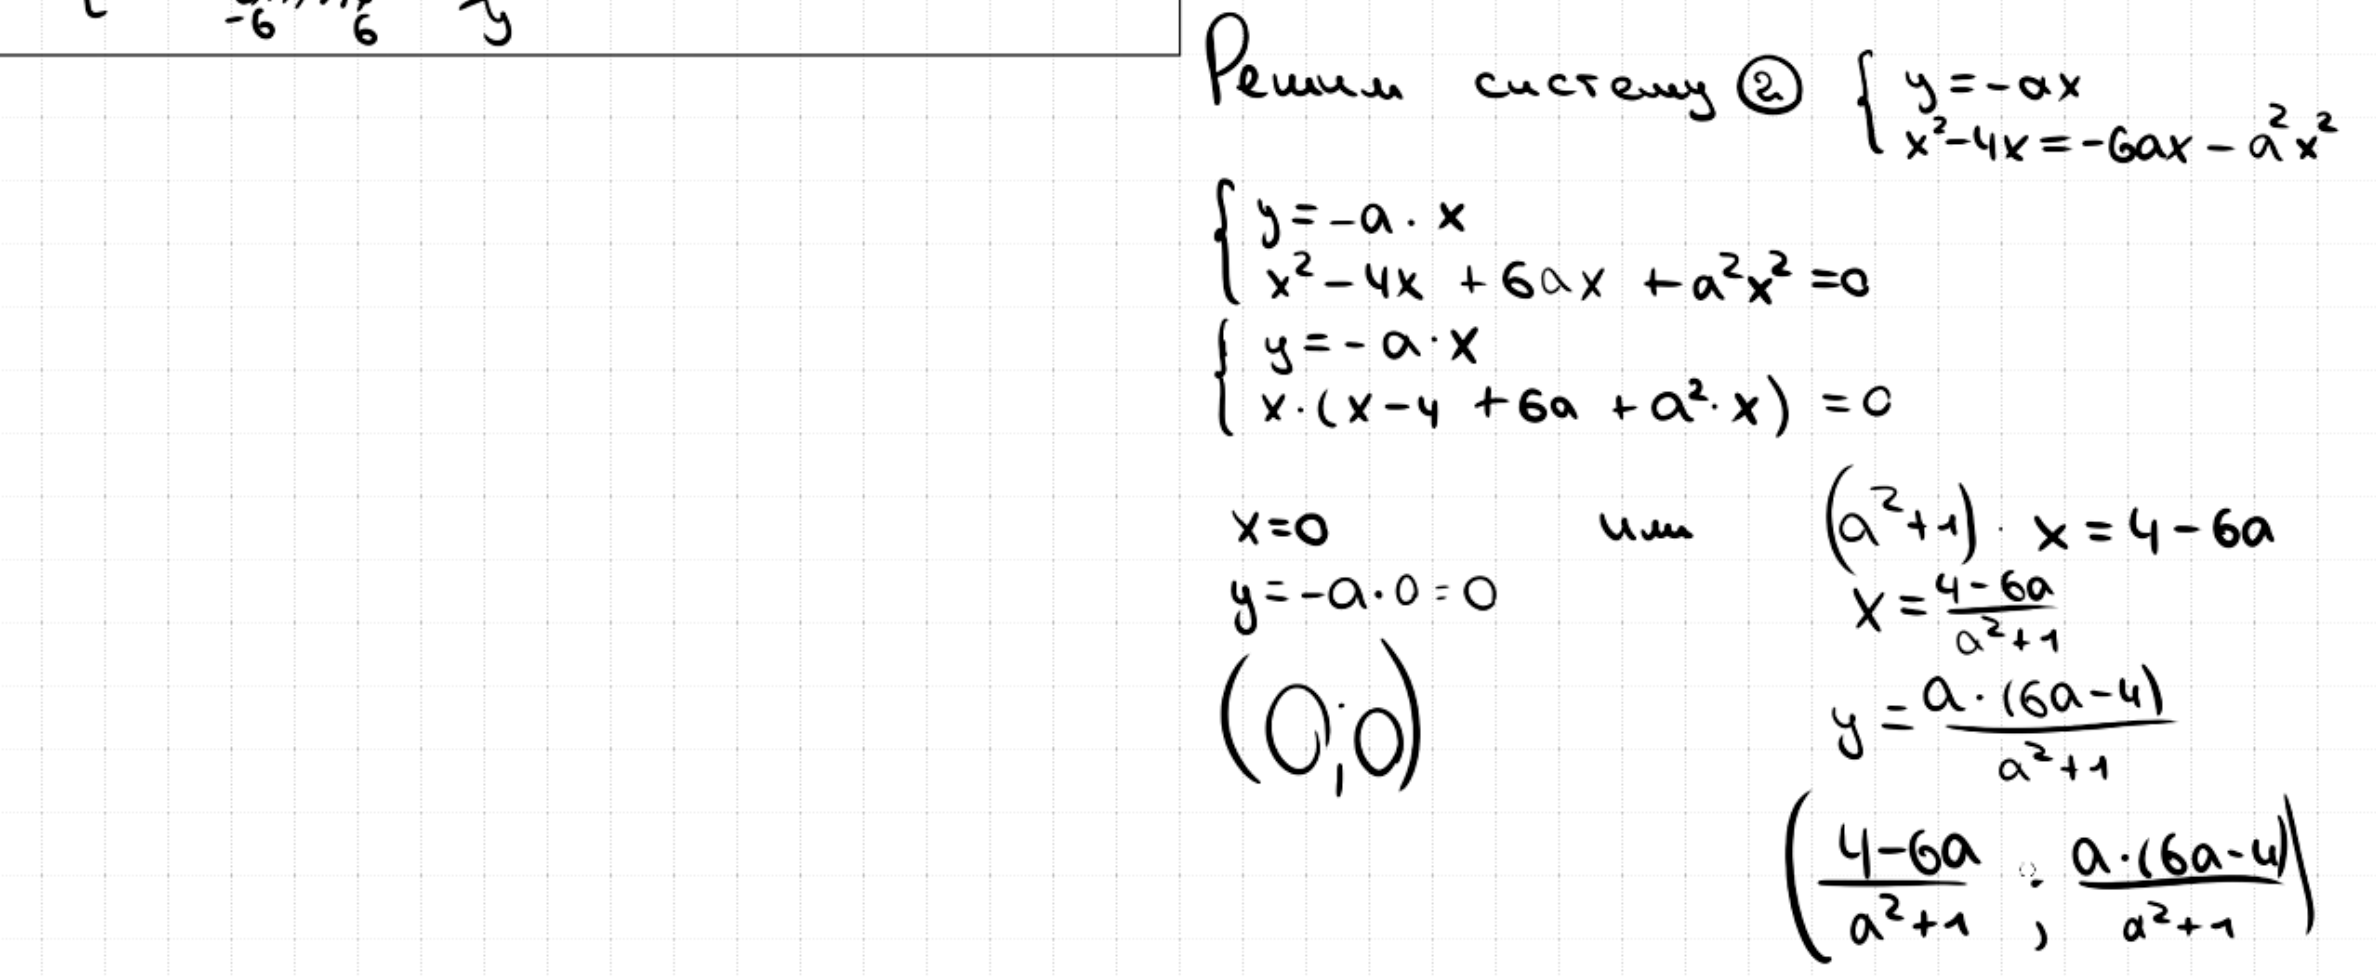 -6 6 y
Решим систему ② { y = -ax
x² - 4x = -6ax - a²x²
{ y = -a · x
x² - 4x + 6ax + a²x² = 0
{ y = -a · x
x · (x - 4 + 6a + a² · x) = 0
x = 0 или (a² + 1) · x = 4 - 6a
y = -a · 0 = 0 x = (4 - 6a)/(a² + 1)
(0; 0) y = (a · (6a - 4))/(a² + 1)
((4 - 6a)/(a² + 1); (a · (6a - 4))/(a² + 1))